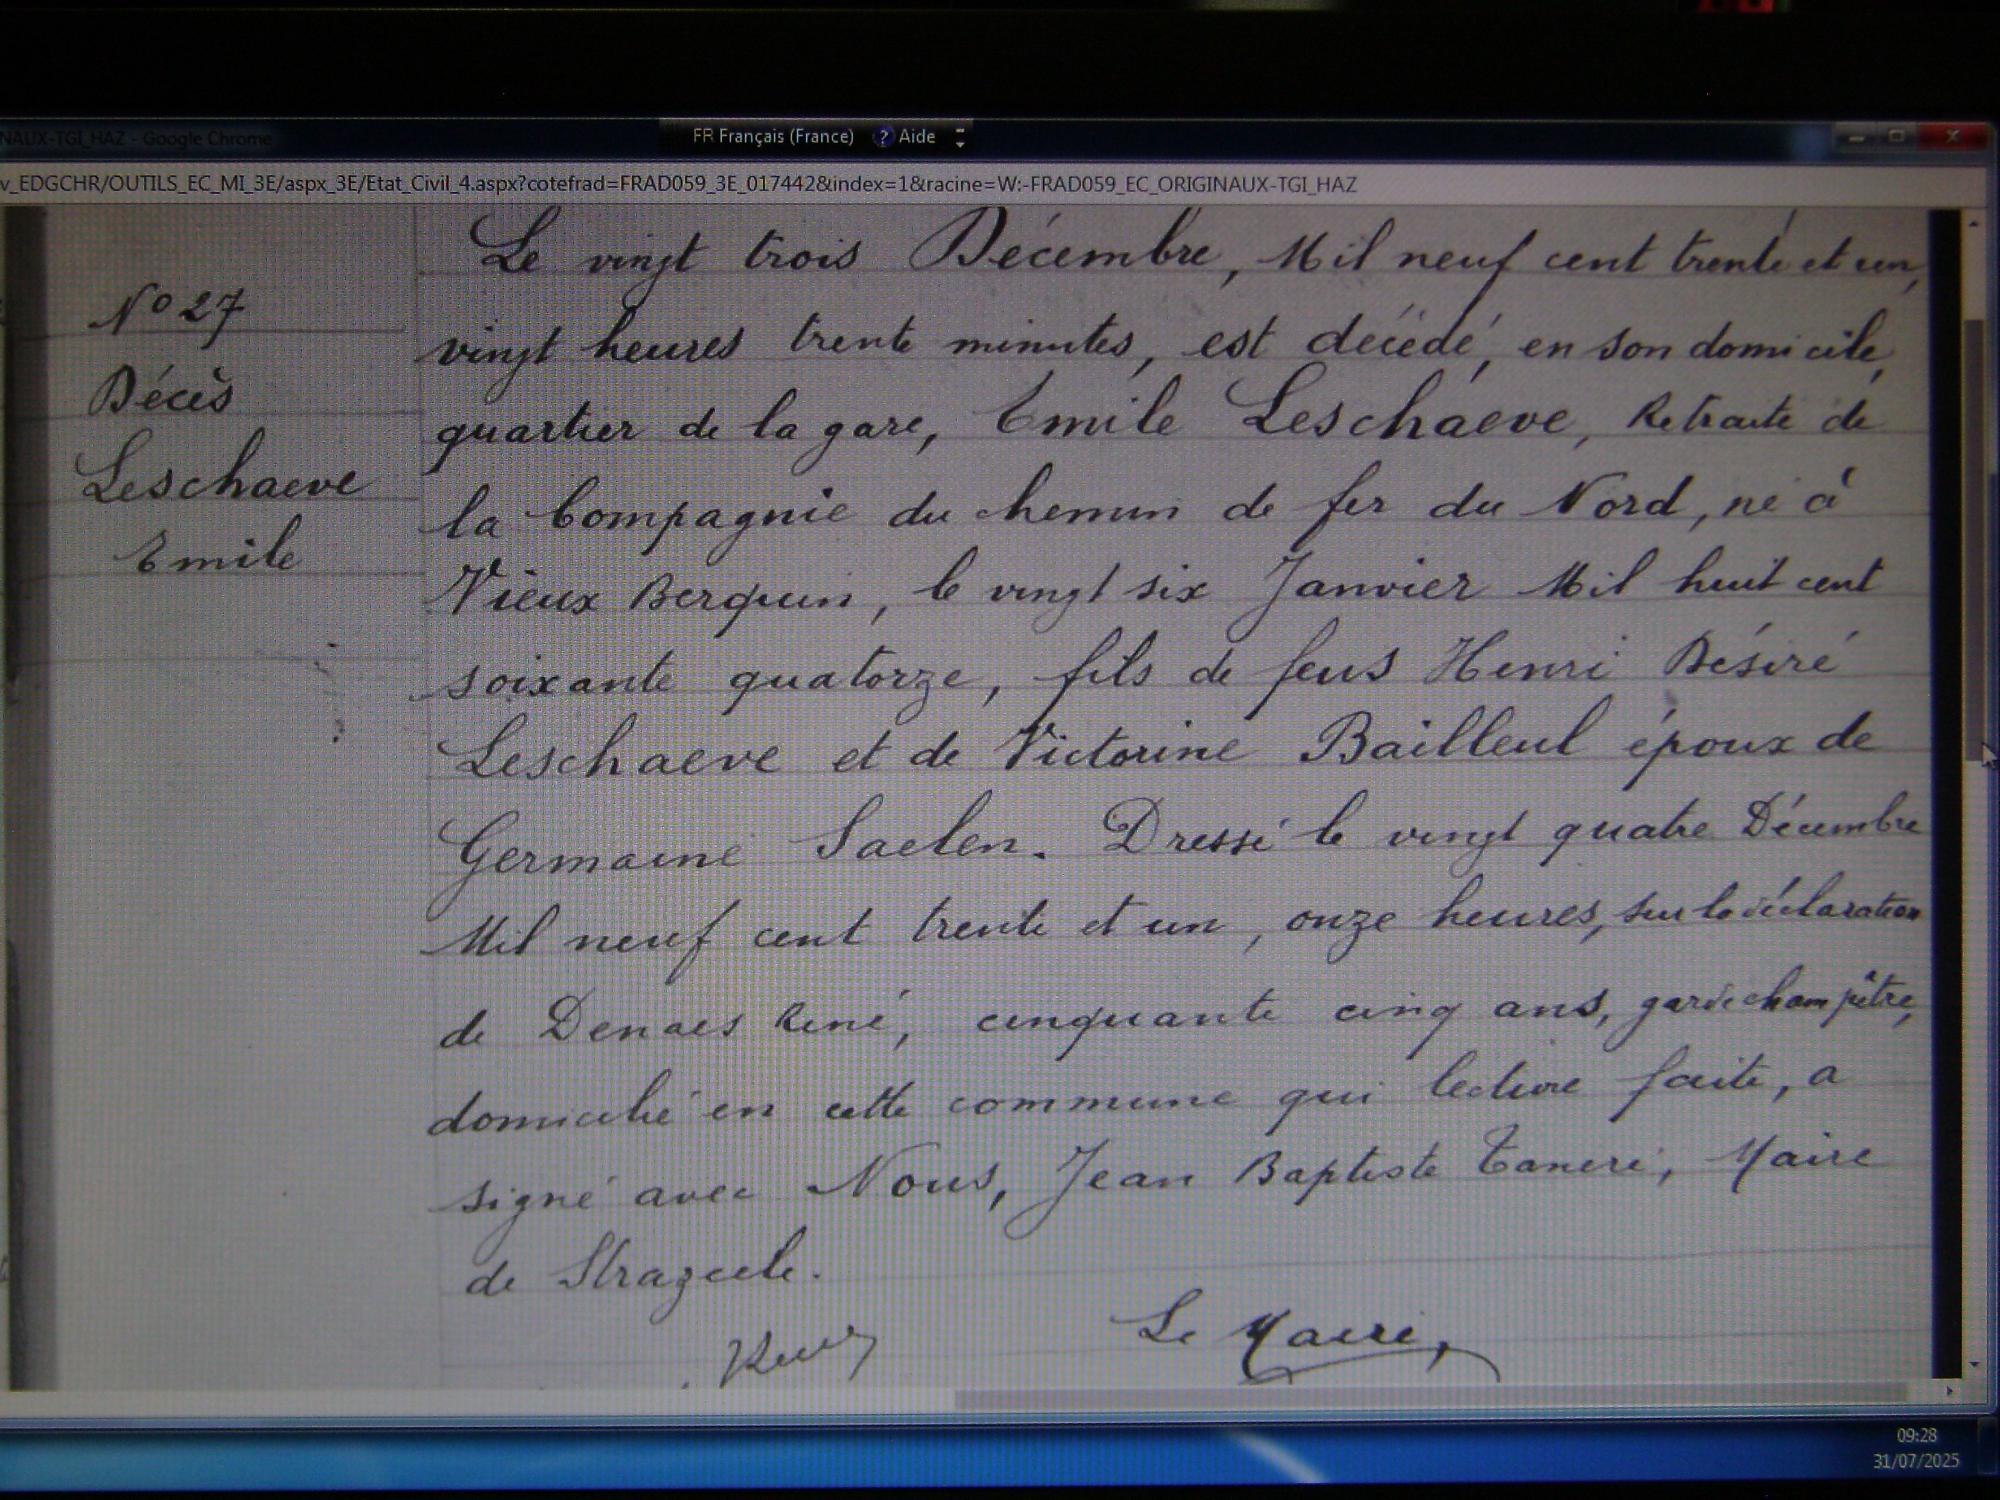 NAUX-TGI_HAZ - Google Chrome
FR Français (France) ? Aide
v_EDGCHR/OUTILS_EC_MI_3E/aspx_3E/Etat_Civil_4.aspx?cotefrad=FRAD059_3E_017442&index=1&racine=W:-FRAD059_EC_ORIGINAUX-TGI_HAZ
N° 27
Décès
Leschaeve
Emile
Le vingt trois Décembre, Mil neuf cent trente et un,
vingt heures trente minutes, est décédé, en son domicile,
quartier de la gare, Emile Leschaeve, Retraité de
la Compagnie du chemin de fer du Nord, né à
Vieux Berquin, le vingt six Janvier Mil huit cent
soixante quatorze, fils de feus Henri Désiré
Leschaeve et de Victorine Bailleul époux de
Germaine Saelen. Dressé le vingt quatre Décembre
Mil neuf cent trente et un, onze heures, sur la déclaration
de Denaes René, cinquante cinq ans, garde champêtre,
domicilié en cette commune qui lecture faite, a
signé avec Nous, Jean Baptiste Taneré, Maire
de Strazeele.
Le Maire,
09:28
31/07/2025